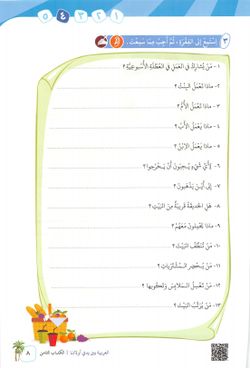 ١ ٢ ٣ ٤ ٥
٣ اِسْتَمِعْ إِلَى الفِقْرَةِ، ثُمَّ أَجِبْ مِمَّا سَمِعْتَ.
١- مَنْ يُشَارِكُ فِي العَمَلِ فِي العُطْلَةِ الأُسْبُوعِيَّةِ؟
٢- مَاذَا تَعْمَلُ البِنْتُ؟
٣- مَاذَا تَعْمَلُ الأُمُّ؟
٤- مَاذَا يَعْمَلُ الأَبُ؟
٥- مَاذَا يَعْمَلُ الاِبْنُ؟
٦- لِأَيِّ شَيْءٍ يُحِبُّونَ أَنْ يَخْرُجُوا؟
٧- إِلَى أَيْنَ يَذْهَبُونَ؟
٨- هَلِ الحَدِيقَةُ قَرِيبَةٌ مِنَ البَيْتِ؟
٩- مَاذَا يَحْمِلُونَ مَعَهُمْ؟
١٠- مَنْ تُنَظِّفُ البَيْتَ؟
١١- مَنْ يُحْضِرُ المُشْتَرَيَاتِ؟
١٢- مَنْ تَغْسِلُ المَلَابِسَ وَتَكْوِيهَا؟
١٣- مَنْ يُرَتِّبُ البَيْتَ؟
العربية بين يدي أولادنا | الكتاب الثاني
٨